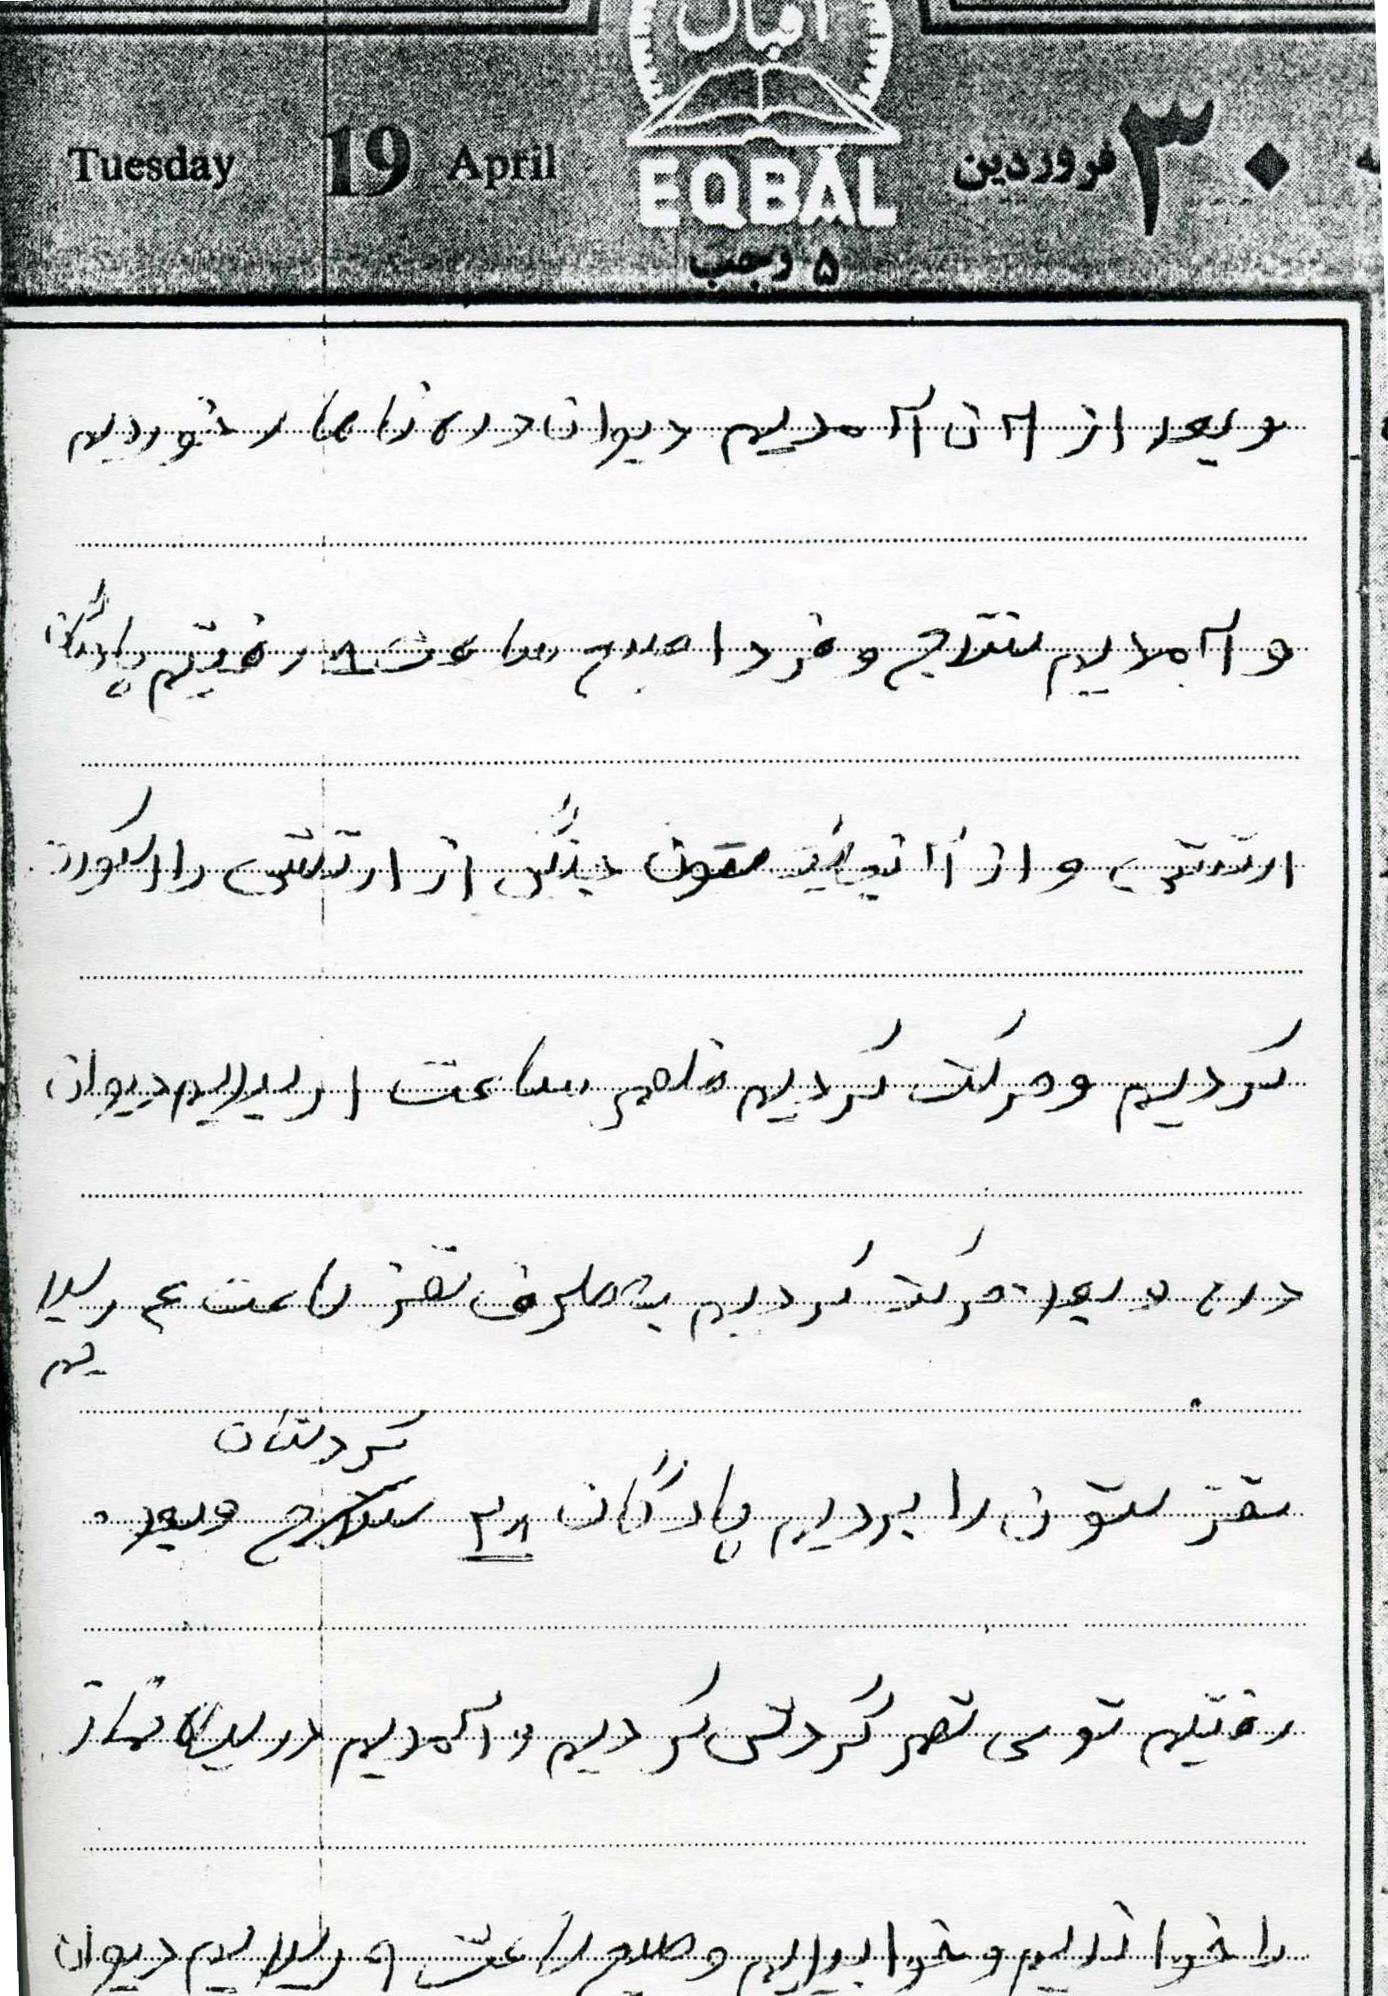 اقبال
Tuesday 19 April EQBAL ۳۰ فروردین
۵ وجب
و بعد از آن آمدیم دیوان دره ناهار خوردیم
و آمدیم سنندج و فردا صبح ساعت ۸ رفتیم پادگان
ارتش و از آنجا ستون دیگر از ارتش را اسکورت
کردیم و حرکت کردیم ظهر ساعت ۱ رسیدیم دیوان
دره و بعد حرکت کردیم به طرف سقز ساعت ۴ رسید
یم
کردستان
سقز ستون را بردیم پادگان ۲۸ سنندج و بعد
رفتیم توی شهر گردش کردیم و آمدیم در سپاه نماز
را خواندیم و خوابیدیم و صبح ساعت ۹ رسیدیم دیوان